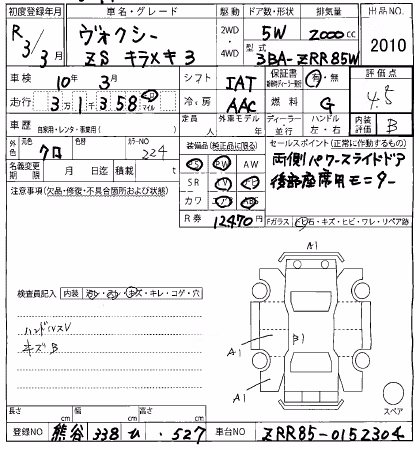 初度登録年月 車名・グレード 駆動 ドア数・形状 排気量 出品NO.
R 3/3月 ヴォクシー ZS キラメキ3 2WD・4WD 5W 2000cc 2010
型式 3BA-ZRR85W
車検 10年 3月 シフト IAT 保証書 有・無 評価点 4.5
走行 3万1千358 km マイル 冷房 AAC 燃料 G
車歴 自家用・レンタ・事業用( ) 定員 人 外車モデル 年 ディーラー・並行 ハンドル 左・右 内装評価 B
外色 元色 クロ 色 カラーNO 224 装備品(純正品に限る) セールスポイント(正常に作動するもの)
PS PW AW 両側パワースライドドア
名義変更期限 月 日迄 積載 t SR 後部座席用モニター
注意事項(欠品・修復・不具合箇所および状態) カワ エアB ABS
R券 12470円 Fガラス 飛石・キズ・ヒビ・ワレ・リペア跡
A1
検査員記入 内装 キズ・キレ・コゲ・穴
ハンドル
キズB
B1
A1
A1
スペア
長さ cm 幅 cm 高さ cm
登録NO 熊谷 338 ひ ・527 車台NO ZRR85-0152304